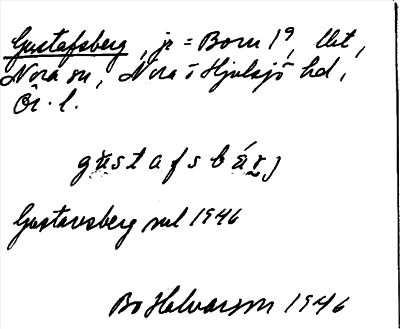 Gustafsberg, jr = Born 1⁹, llit,
Nora sn, Nora o Hjulsjö hd,
Ör. l.
gu̥stafsbárj
Gustavsberg jul 1946
Bo Halvarson 1946